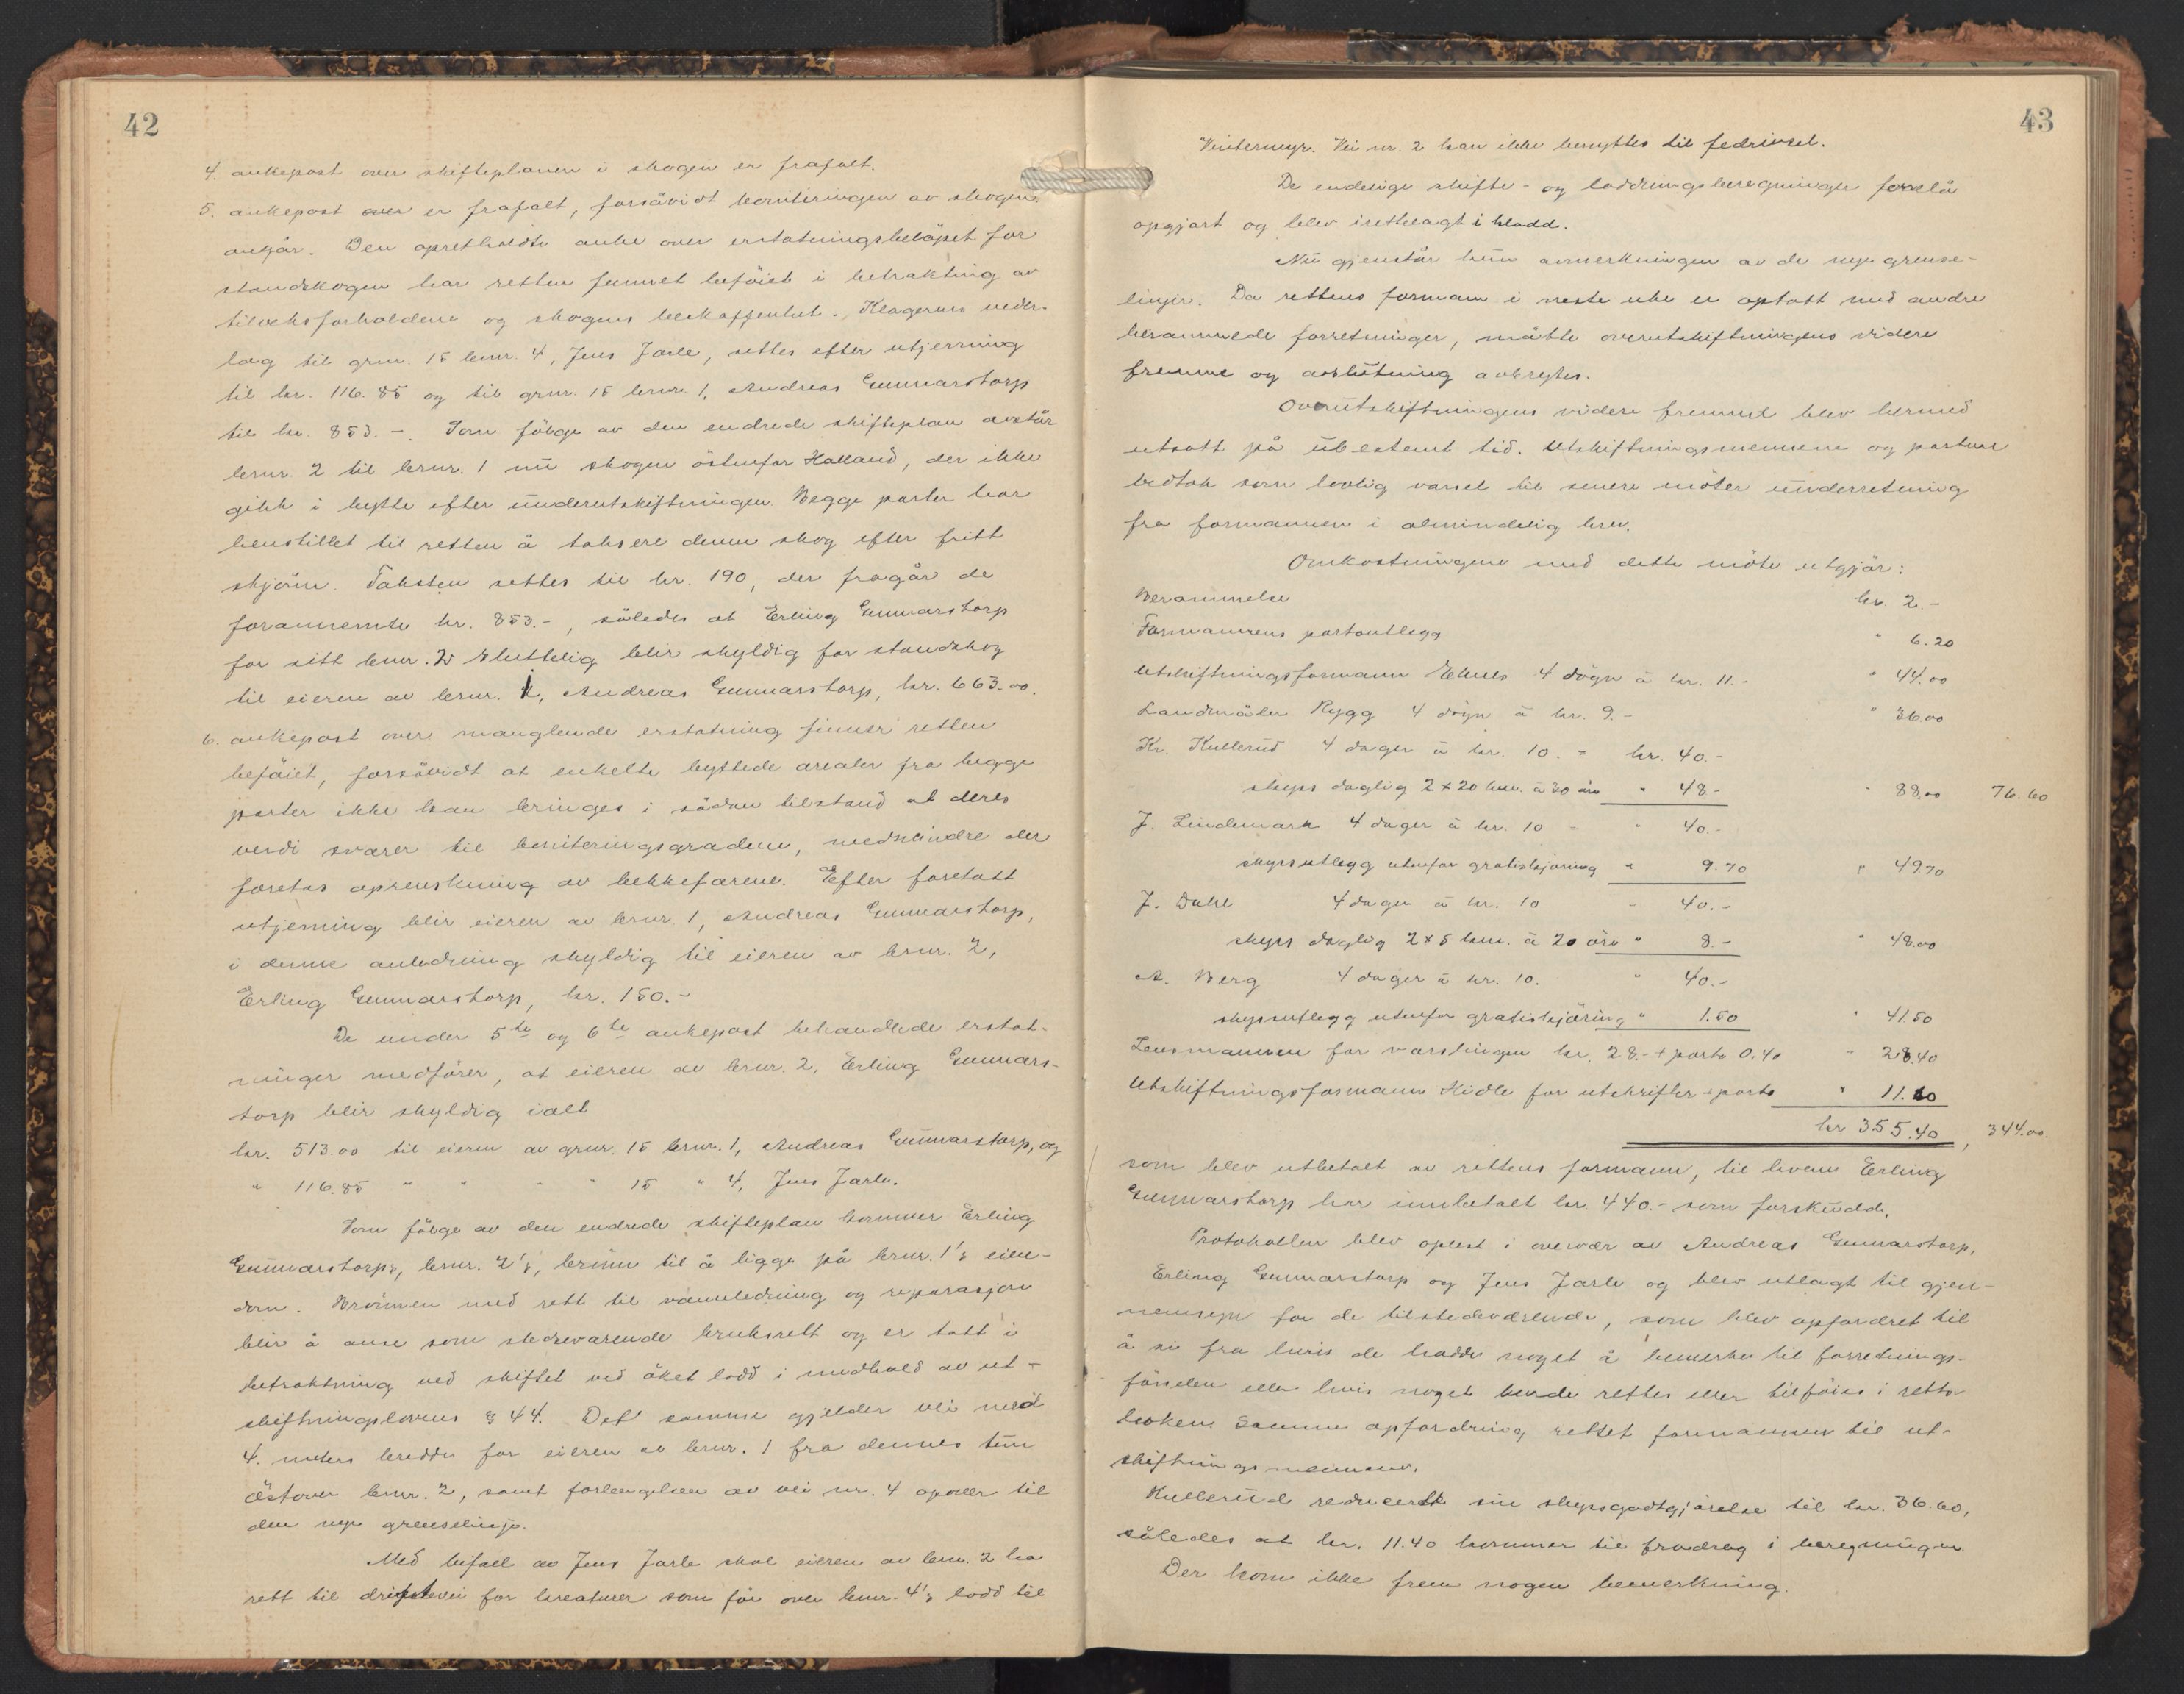 42
4. ankepost over skifteplanen i skogen er frafalt.
5. ankepost over er frafalt, forsåvidt boniteringen av skogen
angår. Den opretholdte anke over erstatningsbeløpet for
standskogen har retten funnet beføiet i betraktning av
tilvekstforholdene og skogens beskaffenhet. Klagerens veder-
lag til gnr. 15 brnr. 4, Jens Jarle, settes efter utjevning
til kr. 116.85 og til gnr. 15 brnr. 1, Andreas Gunnarstorp
til kr. 853.-. Som følge av den endrede skifteplan avstår
brnr. 2 til brnr. 1 nu skogen østenfor Halland, der ikke
gikk i bytte efter underutskiftningen. Begge parter har
henstillet til retten å taksere denne skog efter fritt
skjønn. Taksten settes til kr. 190, der fragår de
forannevnte kr. 853.-, således at Erling Gunnarstorp
for sitt brnr. 2 sluttelig blir skyldig for standskog
til eieren av brnr. 1, Andreas Gunnarstorp, kr. 663.00.
6. ankepost over manglende erstatning finner retten
beføiet, forsåvidt at enkelte byttede arealer fra begge
parter ikke kan bringes i sådan tilstand at deres
verdi svarer til boniteringsgradene, medmindre der
foretas oprenskning av bekkefarene. Efter foretatt
utjevning blir eieren av brnr 1, Andreas Gunnarstorp,
i denne anledning skyldig til eieren av brnr. 2,
Erling Gunnarstorp, kr. 150.-
De under 5te og 6te ankepost behandlede erstat-
ninger medfører, at eieren av brnr. 2, Erling Gunnars-
torp blir skyldig ialt
kr. 513.00 til eieren av gnr. 15 brnr. 1, Andreas Gunnarstorp, og
" 116.85 " " " " 15 " 4, Jens Jarle.
Som følge av den endrede skifteplan kommer Erling
Gunnarstorps, brnr. 2's, brønn til å ligge på brnr. 1's eien-
dom. Brønnen med rett til vannledning og reparasjon
blir å anse som stedsevarende bruksrett og er tatt i
betraktning ved skiftet ved øket lodd i medhold av ut-
skiftningslovens § 44. Det samme gjelder vei med
4. meters bredde for eieren av brnr. 1 fra dennes tun
østover brnr. 2, samt forlengelsen av vei nr. 4 opover til
den nye grenselinje.
Med bifall av Jens Jarle skal eieren av brnr. 2 ha
rett til driftevei for kreaturer som før over brnr. 4's lodd til
43
Vintermyr. Vei nr. 2 kan ikke benyttes til fedrivsel.
De endelige skifte- og loddningsberegninger forelå
opgjort og blev irettelagt i kladd.
Nu gjenstår kun avmerkningen av de nye grense-
linjer. Da rettens formann i neste uke er optatt med andre
berammede forretninger, måtte overutskiftningens videre
fremme og avslutning avbrytes.
Overutskiftningens videre fremme blev hermed
utsatt på ubestemt tid. Utskiftningsmennene og partene
vedtok som lovlig varsel til senere møter underretning
fra formannen i almindelig brev.
Omkostningene med dette møte utgjør:
Berammelse kr. 2.-
Formannens portoutlegg " 6.20
Utskiftningsformann 4 døgn à kr. 11.- " 44.00
Landmåler Rygg 4 døgn à kr. 9.- " 36.00
Kr. Kullerud 4 dager à kr. 10. = kr. 40.-
skyss daglig 2 x 20 km. à 30 øre " 48.- " 88.00 76.60
J. Lindemark 4 dager à kr. 10 = " 40.-
skyssutlegg utenfor gratiskjøring " 9.70 " 49.70
J. Dahl 4 dager à kr. 10 - 40.-
skyss daglig 2 x 5 km. à 20 øre " 8.- " 48.00
A. Berg 4 dager à kr. 10. " 40.-
skyssutlegg utenfor gratiskjøring " 1.50 " 41.50
Lensmannen for varslingen kr. 28.- + porto 0.40 " 28.40
Utskiftningsformann Hidle for utskrifter + porto " 11.60
kr 355.40, 344.00
som blev utbetalt av rettens formann, til hvem Erling
Gunnarstorp har innbetalt kr. 440.- som forskudd.
Protokollen blev oplest i overvær av Andreas Gunnarstorp,
Erling Gunnarstorp og Jens Jarle og blev utlagt til gjen-
nemsyn for de tilstedeværende, som blev opfordret til
å si fra hvis de hadde noget å bemerke til forretnings-
førselen eller hvis noget burde rettes eller tilføies i retts-
boken. Samme opfordring rettet formannen til ut-
skiftningsmennene.
Kullerud reducerte sin skyssgodtgjørelse til kr. 36.60,
således at kr. 11.40 kommer til fradrag i beregningen.
Der kom ikke frem nogen bemerkning.